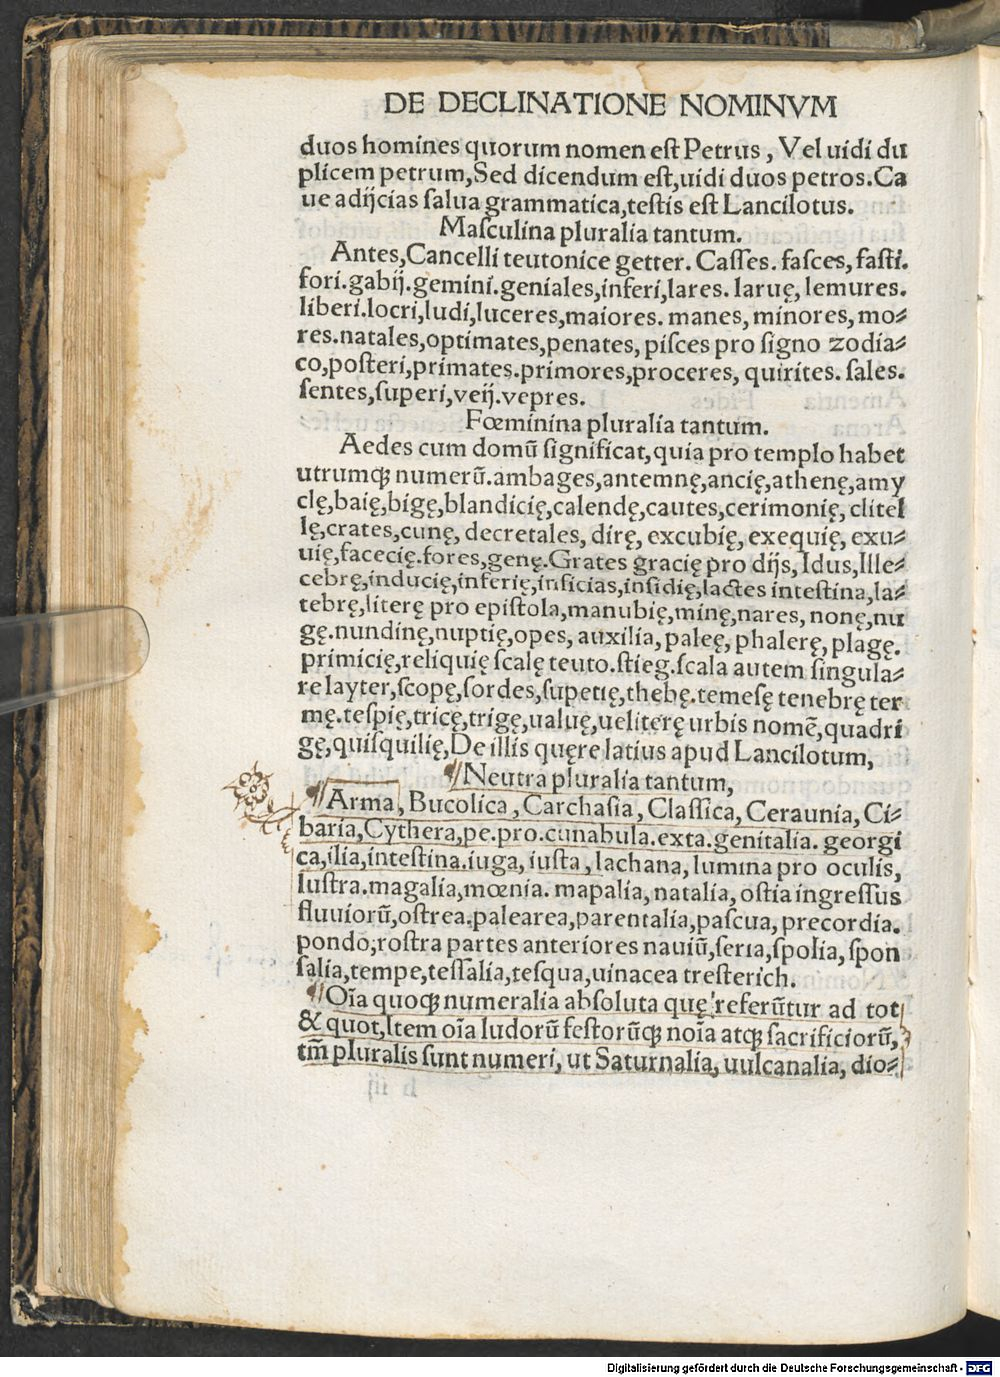 DE DECLINATIONE NOMINVM
duos homines quorum nomen eſt Petrus, Vel uidi du
plicem petrum, Sed dicendum eſt, uidi duos petros. Ca
ue adijcias ſalua grammatica, teſtis eſt Lancilotus.
Maſculina pluralia tantum.
Antes, Cancelli teutonice getter. Caſſes. faſces, faſti.
fori. gabij. gemini. geniales, inferi, lares. laruę, lemures.
liberi. locri, ludi, luceres, maiores. manes, minores, mo⸗
res. natales, optimates, penates, piſces pro ſigno zodia⸗
co, poſteri, primates. primores, proceres, quirites. ſales.
ſentes, ſuperi, veij. vepres.
Fœminina pluralia tantum.
Aedes cum domũ ſignificat, quia pro templo habet
utrumqꝫ numerũ. ambages, antemnę, ancię, athenę, amy
clę, baię, bigę, blandicię, calendę, cautes, cerimonię, clitel
lę, crates, cunę, decretales, dirę, excubię, exequię, exu⸗
uię, facecię. fores, genę. Grates gracię pro dijs, Idus, Ille⸗
cebrę, inducię, inferię, inficias, inſidię, lactes inteſtina, la⸗
tebrę, literę pro epiſtola, manubię, minę, nares, nonę, nu
gę. nundinę, nuptię, opes, auxilia, paleę, phalerę, plagę.
primicię, reliquię ſcalę teuto. ſtieg. ſcala autem ſingula⸗
re layter, ſcopę, ſordes, ſupetię, thebę. temeſę tenebrę ter
mę. teſpię, tricę, trigę, ualuę, ueliterę urbis nomẽ, quadri
gę, quiſquilię, De illis quęre latius apud Lancilotum,
¶Neutra pluralia tantum,
¶Arma, Bucolica, Carchaſia, Claſſica, Ceraunia, Ci⸗
baria, Cythera, pe. pro. cunabula. exta. genitalia. georgi
ca, ilia, inteſtina. iuga, iuſta, lachana, lumina pro oculis,
luſtra. magalia, mœnia. mapalia, natalia, oſtia ingreſſus
fluuiorũ, oſtrea. palearea, parentalia, paſcua, precordia.
pondo, roſtra partes anteriores nauiũ, ſeria, ſpolia, ſpon
ſalia, tempe, teſſalia, teſqua, uinacea treſterich.
¶Oĩa quoqꝫ numeralia abſoluta quę referũtur ad tot
& quot, Item oĩa ludorũ feſtorũqꝫ noĩa atqꝫ ſacrificiorũ,
tm̃ pluralis ſunt numeri, ut Saturnalia, uulcanalia, dio⸗
Digitalisierung gefördert durch die Deutsche Forschungsgemeinschaft - DFG